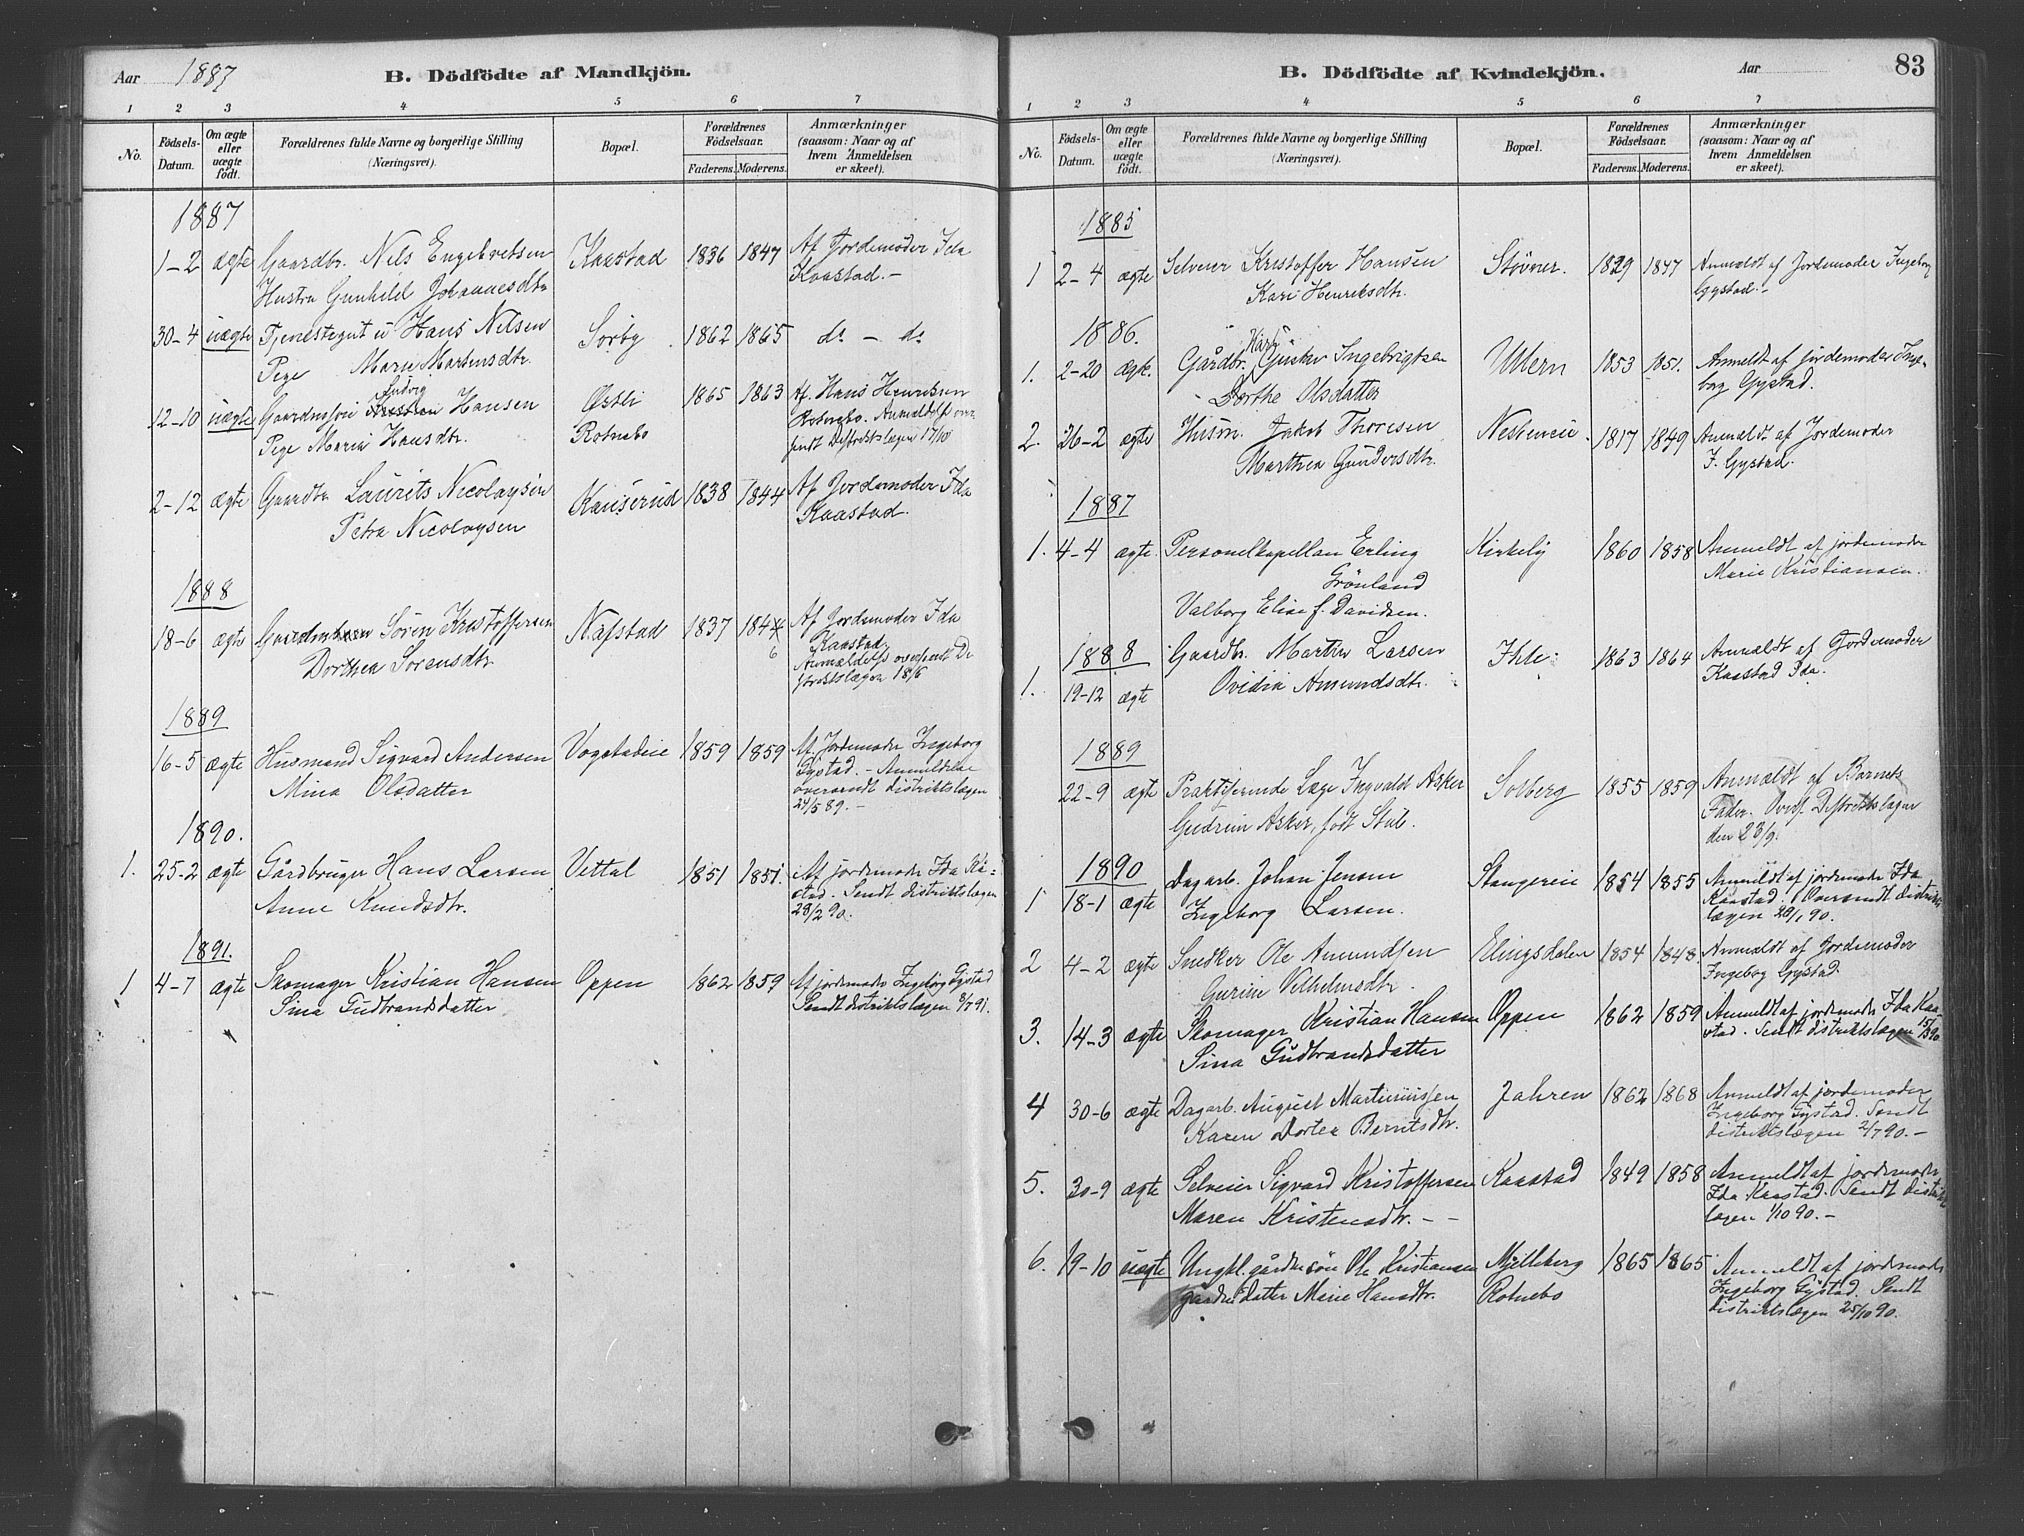 Aar 1887 B. Dödfödte af Mandkjön.
1 2 3 4 5 6 7
No. Födsels-Datum. Om ægte eller uægte födt. Forældrenes fulde Navne og borgerlige Stilling (Næringsvei). Bopæl. Forældrenes Födselsaar. Faderens. Moderens. Anmærkninger (saasom: Naar og af hvem Anmeldelsen er skeet).
1887
1-2 ægte Gaardbr. Nils Engebretsen Kaastad 1836 1847 Af Jordemoder Ida
Hustru Gunhild Johannesdtr. Kaastad.-
30-4 uægte Tjenestegut u Hans Nilsen Sørby 1862 1865 do - do
Pige Marie Martensdtr.
12-10 uægte Gaardmssøn Ludvig Hansen Østli 1865 1863 Af Hans Henriksen
Pige Maria Hansdtr. Rotnebo Rotnebo. Anmeldelse over-
sendt Distriktslægen 17/10
2-12 ægte Gaardbr. Laurits Nicolaysen Kauserud 1838 1844 Af Jordemoder Ida
Petra Nicolaysen Kaastad.
1888
18-6 ægte Søren Kristoffersen Nafstad 1837 1844 6 Af Jordemoder Ida
Dorthea Sorensdtr. Kaastad
Anmeldelse oversendt Di-
striktslægen 18/6
1889
16-5 ægte Husmand Sigvard Andersen Vogstadeie 1859 1859 Af Jordemoder Ingeborg
Mina Olsdatter Gystad. - Anmeldelse
oversendt distriktslægen
24/5 89. -
1890.
1. 25-2 ægte Gårdbruger Hans Larsen Vettal 1851 1851. Af jordemoder Ida Kå-
Anne Knudsdtr. stad. Sendt distriktslægen
28/2 90.
1891.
1 4-7 ægte Skomager Kristian Hansen Oppen 1862 1859 Af jordemoder Ingeborg Gystad
Sina Gudbrandsdatter Sendt distriktslægen 8/7 91.
B. Dödfödte af Kvindekjön. Aar 83
1 2 3 4 5 6 7
No. Födsels-Datum. Om ægte eller uægte födt. Forældrenes fulde Navne og borgerlige Stilling (Næringsvei). Bopæl. Forældrenes Födselsaar. Faderens. Moderens. Anmærkninger (saasom: Naar og af hvem Anmeldelsen er skeet).
1885
1 2-4 ægte Selveier Kristoffer Hansen Støvner. 1829 1847 Anmeldt af Jordemoder Ingeborg
Kari Henriksdtr. Gystad.-
1886.
1. 2-20 ægte. Gårdbr. Ingebrigtsen Ullern 1853 1851. Anmeldt af jordemoder Inge-
Dorthe Olsdatter borg Gystad.
2. 26-2 ægte Husm. Jakob Thoresen Nesteneie 1817 1849 Anmeldt af Jordemoder
Marthea Gundersdtr. I. Gystad.
1887
1. 4-4 ægte. Personelkapellan Erling Kirkeby 1860 1858 Anmeldt af jordemoder
Grönland Marie Kristiansen.
Valborg Elise f. Davidsen.
1888 Gaardbr. Martin Larsen Ihle 1863 1864 Anmeldt af Jordemoder
1. 19-12 ægte Ovidia Amundsdtr. Kaastad Ida.
1889
22-9 ægte Praktiserende Læge Ingvald Asker Solberg 1855 1859 Anmeldt af Barnets
Gudrun Asker, født Stub. Fader. Overs. Distriktslægen
den 23/9.
1890 Dagarb. Johan Jensen Stangereie 1854 1855 Anmeldt af jordemoder Ida
1 18-1 ægte Ingeborg Larsen. Kaastad. Oversendt distrikts
lægen 20/1 90.
2 4-2 ægte Snedker Ole Amundsen Elingsdalen 1854 1848. Anmeldt af Jordemoder
Gurine Vilhelmsdtr. Ingeborg Gystad.
3. 14-3 ægte Skomager Kristian Hansen Oppen 1862 1859 Anmeldt af jordemoder Ida Kaa-
Sina Gudbrandsdatter stad. Sendt distriktslægen 15/3 90.
4 30-6 ægte Dagarb. August Martiniussen Jahren 1862 1868 Anmeldt af jordemoder
Karen Dortea Berntsdtr. Ingeborg Gystad. Sendt
distriktslægen 2/7 90. -
5. 30-9 ægte Selveier Sigvard Kristoffersen Kaastad 1849 1858 Anmeldt af jordemoder
Maren Kristensdtr. - - Ida Kaastad. Sendt distrikts
lægen 1/10 90. -
6. 19-10 uægte Ungkl. gårdmsøn Ole Kristiansen Mjelleberg 1865 1865 Anmeldt af jordemoder
gårdmdatter Marie Hansdtr. Rotnebo Ingeborg Gystad. Sendt
distriktslægen 25/10 90.